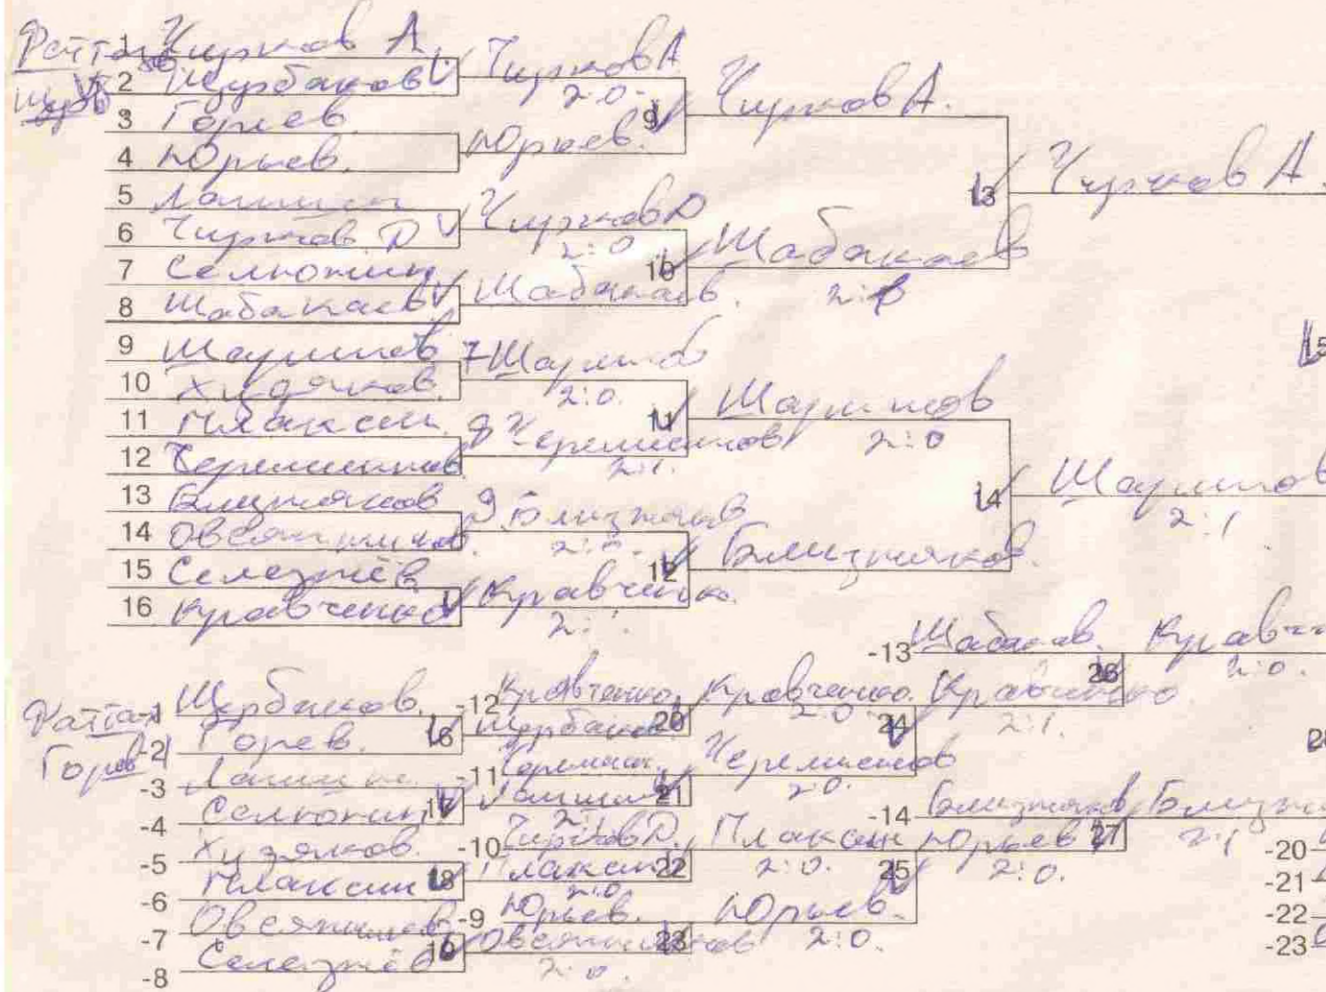 1 Чирков А.
2 Щербаков
3 Горев.
4 Юрьев.
5 Лапшин
6 Чирков Д
7 Селюнин
8 Шабакаев
9 Шарипов
10 Худяков.
11 Плаксин.
12 Черемисинов
13 Близняков
14 Овсянников.
15 Селезнёв
16 Кравченко
Чирков А
2:0.
Юрьев.
Чирков Д
2:0
Шабакаев.
7 Шарипов
2:0.
8 Черемисинов
2:1.
9 Близняков
Кравченко.
9 Чирков А.
10 Шабакаев
11 Шарипов
2:0
12 Близняков.
13 Чирков А.
14 Шарипов
2:1
15
-1 Щербаков.
-2 Горев.
-3 Лапшин.
-4 Селюнин
-5 Худяков.
-6 Плаксин
-7 Овсянников
-8 Селезнёв
-12 Кравченко.
16 Щербаков
-11 Черемисин.
17 Лапшин
2:1
-10 Чирков Д.
18 Плаксин
2:0
-9 Юрьев.
19 Овсянников
2:0.
20 Кравченко.
2:0
21 Черемисинов
2:0.
22 Плаксин
2:0.
23 Юрьев.
2:0.
-13 Шабакаев.
24 Кравченко
2:1.
-14 Близняков
25 Юрьев
2:0.
26 Кравч
2:0.
27 Близня
2:1
28
-20
-21
-22
-23